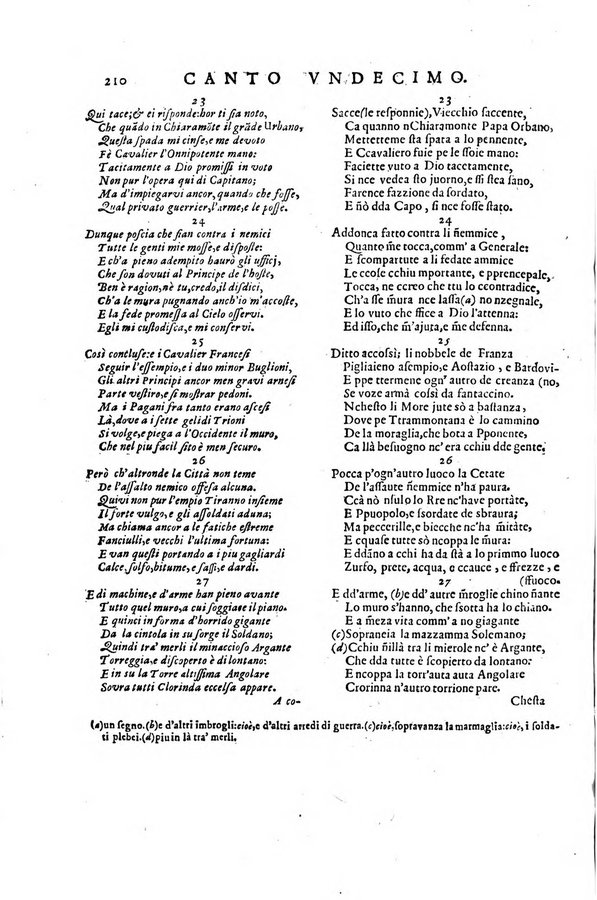 210 CANTO VNDECIMO.
23
Qui tace;& ei risponde:hor ti sia noto,
Che quãdo in Chiaramõte il grãde Urbano,
Questa spada mi cinse,e me devoto
Fè Cavalier l'Onnipotente mano:
Tacitamente a Dio promisi in voto
Non pur l'opera qui di Capitano;
Ma d'impiegarvi ancor,quando che fosse,
Qual privato guerrier,l'arme,e le posse.
24
Dunque poscia che sian contra i nemici
Tutte le genti mie mosse,e disposte:
E ch'a pieno adempito haurò gli ufficj,
Che son dovuti al Principe de l'hoste,
Ben è ragion,nè tu,credo,il disdici,
Ch'a le mura pugnando anch'io m'accoste,
E la fede promessa al Cielo osservi.
Egli mi custodisca,e mi conservi.
25
Così concluse:e i Cavalier Francesi
Seguir l'essempio,e i duo minor Buglioni,
Gli altri Principi ancor men gravi arnesi
Parte vestiro,e si mostrar pedoni.
Ma i Pagani fra tanto erano ascesi
Là,dove a i sette gelidi Trioni
Si volge,e piega a l'Occidente il muro,
Che nel piu facil sito è men securo.
26
Però ch'altronde la Città non teme
De l'assalto nemico offesa alcuna.
Quivi non pur l'empio Tiranno insieme
Il forte vulgo,e gli assoldati aduna;
Ma chiama ancor a le fatiche estreme
Fanciulli,e vecchi l'ultima fortuna:
E van questi portando a i piu gagliardi
Calce,solfo,bitume,e sassi,e dardi.
27
E di machine,e d'arme han pieno avante
Tutto quel muro,a cui soggiate il piano.
E quinci in forma d'horrido gigante
Da la cintola in su sorge il Soldano;
Quindi tra' merli il minaccioso Argante
Torreggia,e discoperto è di lontano:
E in su la Torre altissima Angolare
Sovra tutti Clorinda eccelsa appare.
A co-
23
Saccestre responnie),Viecchio saccente,
Ca quanno nChiaramonte Papa Orbano,
Mettetteme sta spata a lo pennente,
E Ccavaliero fuje pe le ssoie mano:
Faciette vuto a Dio tacetamente,
Si nce vedea sto juorno,e sti stea sano,
Farence fazzione da sordato,
E nõ dda Capo , si nce fosse stato.
24
Addonca fatto contra li ñemmice ,
Quanto m̃e tocca,comm' a Generale:
E scompartute a li fedate ammice
Le ccose cchiu mportante, e pprencepale,
Tocca, ne cerreo che ttu lo ccontradice,
Ch'a sse m̃ura nce lassa(a) no nzegnale,
E lo vuto che ffice a Dio l'attenna:
Ed isso,che m̃'ajura,e me defenna.
25
Ditto accossì; li nobbele de Franza
Pigliaieno assempio,e Aostazio , e Bardovi-
E ppe ttermene ogn'autro de creanza (no,
Se voze armà cossì da fantaccino.
Nchesto li More jute sò a bastanza,
Dove pe Ttrammontana è lo cammino
De la moraglia,che bota a Pponente,
Ca lo bbesuogno nc'era cchiu dde gente.
26
Pocca p'ogn'autro luoco la Cetate
De l'assaute ñemmice n'ha paura.
Ccà nò nsulo lo Rre nc'have portate,
E Ppuopolo,e sordate de sbraura;
Ma peccerille,e biecche nc'ha m̃itate,
E cquase tutte sò ncoppa a le m̃ura:
E ddãno a cchi ha da stà a lo primmo luoco
Zurfo, prete, acqua, e ccauce , e ffrezze , e
(ffuoco.
27
E dd'arme, (b)e dd' autre m̃roglie chino ñante
Lo muro s'hanno, che ssotta ha lo chiano.
E a m̃eza vita comm' a no giagante
(c)Soprancia la mazzamma Solemano;
(d)Cchiu ñillà tra li mierole nc' è Argante,
Che dda tutte è scopierto da lontano:
E ncoppa la torr'auta auta Angolare
Crorinna n'autro torrione pare.
Chesta
(a)un segno.(b)e d'altri imbrogli:cioè,e d'altri arredi di guerra.(c)cioè,sopravanza la marmaglia:cioè, i solda-
ti plebei.(d)piu in là tra' merli.